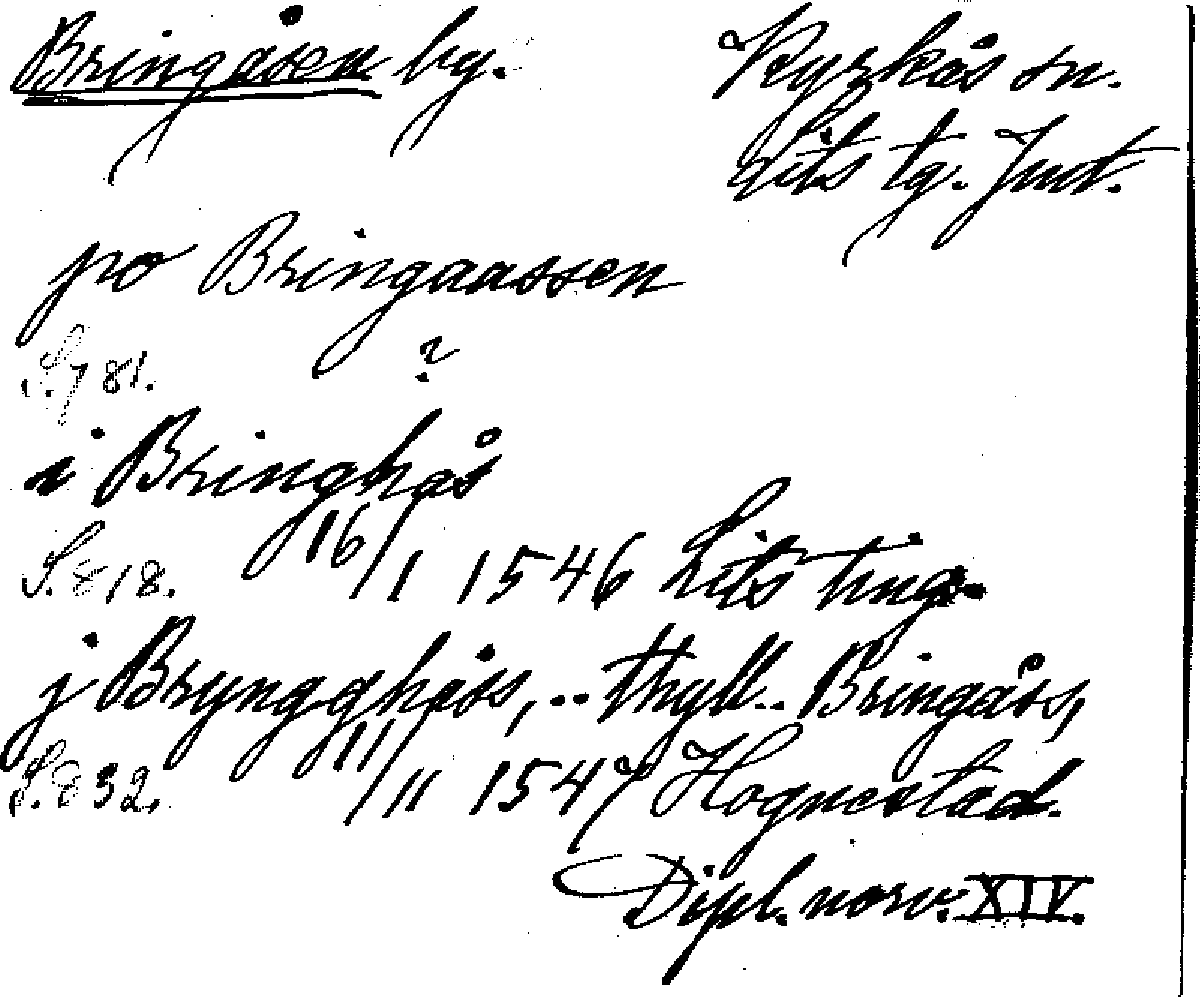 Bringåsen by. Kyrkås sn.
Lits tg. Jmt.
po Bringaassen
S. 781. ?
i Bringhås
S. 818. 16/1 1546 Lits ting.
j Bryngghåss, .. thyll .. Bringåss,
S. 832. 11/11 1547 Hognestad.
Dipl. norv. XIV.